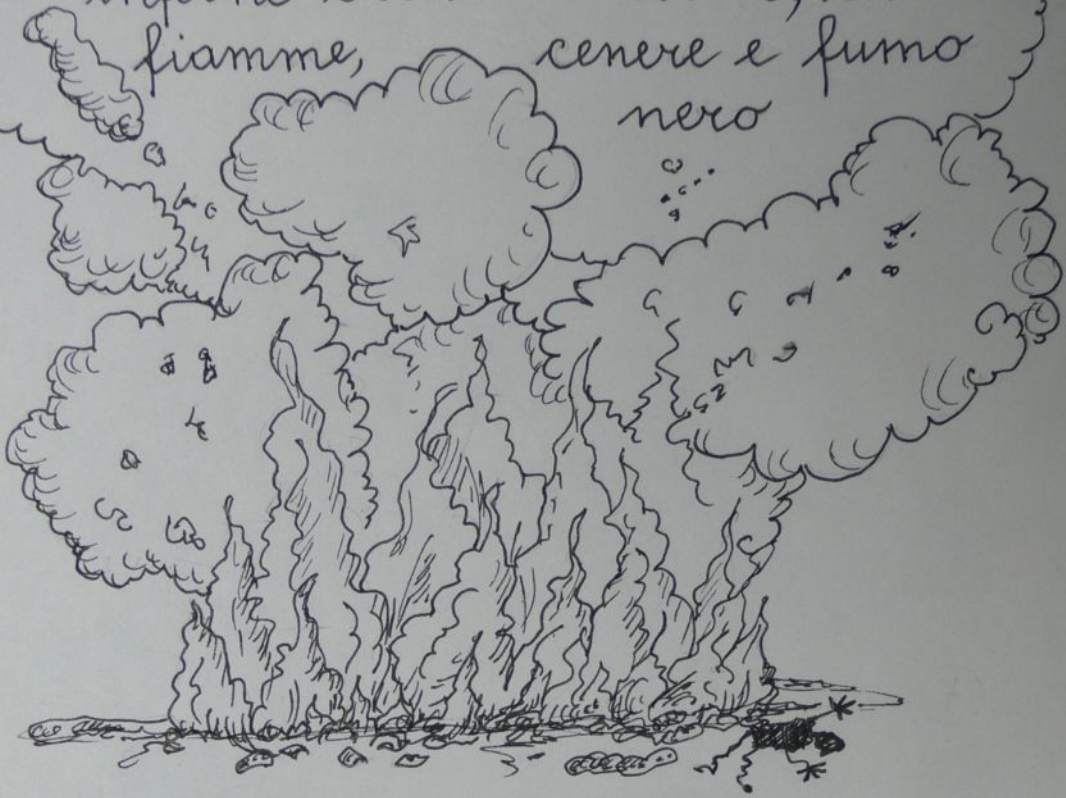 fiamme, cenere e fumo
nero